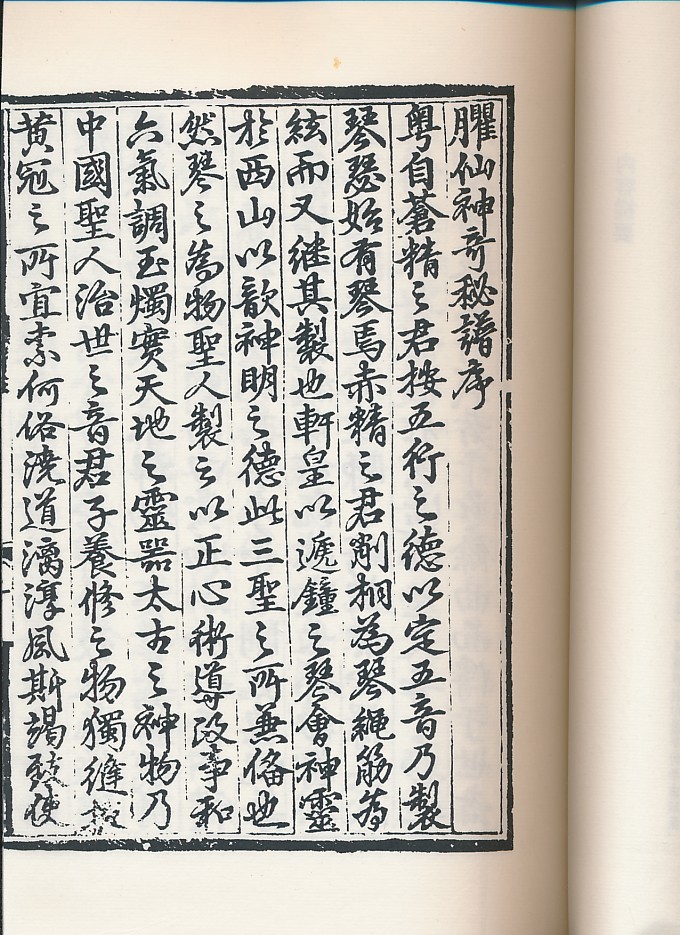 臞仙神奇秘譜序
粵自蒼精之君按五行之德以定五音乃製
琴瑟始有琴焉赤精之君削桐為琴繩筋為
絃而又継其製也軒皇以遞鐘之琴會神靈
於西山以歆神明之德此三聖之所兼俻也
然琴之為物聖人製之以正心術導政事和
六氣調玉燭實天地之靈噐太古之神物乃
中國聖人治世之音君子養修之物獨縫掖
黄冠之所宜素何俗澆道漓淳風斯竭致使